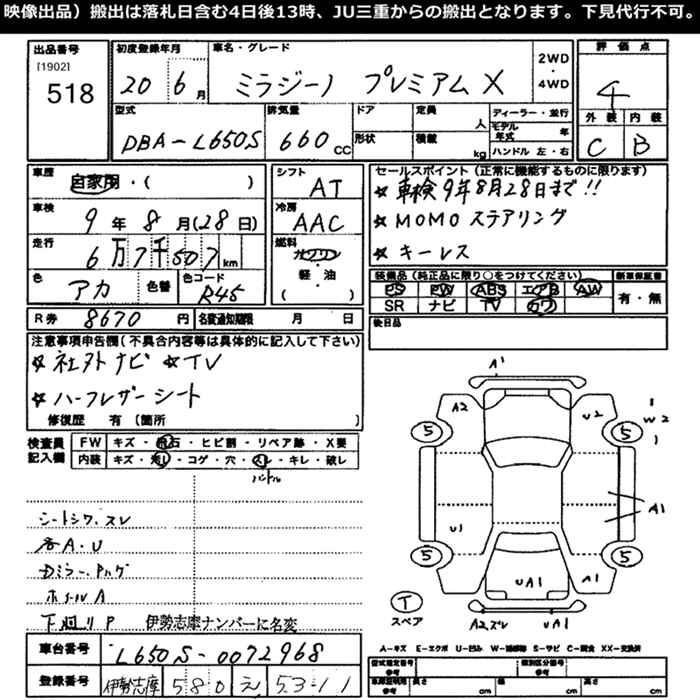 映像出品）搬出は落札日含む4日後13時、JU三重からの搬出となります。下見代行不可。
出品番号 初度登録年月 車名・グレード 2WD・4WD 評価点
[1902]
518 20 6月 ミラジーノ プレミアムX 4
型式 排気量 ドア 定員 人 ディーラー・並行 外装 内装
DBA-L650S 660cc 形状 積載 kg モデル年式 年 C B
ハンドル 左・右
車歴 自家用・( ) シフト AT セールスポイント(正常に機能するものに限ります)
★車検9年8月28日まで!!
車検 9年8月(28日) 冷房 AAC ★MOMOステアリング
走行 6万7千507km 燃料 ガソリン・軽・油 ( ) ★キーレス
色 アカ 色替 色コード R45 装備品(純正品に限り○をつけてください) 新車保証書
PS PW ABS エアB AW 有・無
SR ナビ TV カワ
R券 8670円 名変通知期限 月 日 後日品
注意事項申告欄(不具合内容等は具体的に記入して下さい)
★社外ナビ ★TV
★ハーフレザーシート
修復歴 有(箇所 )
検査員記入欄 FW キズ・飛石・ヒビ割・リペア跡・X要
内装 キズ・汚レ・コゲ・穴・スレ・キレ・破レ
ハンドル
シートシワ、スレ
各A・U
ホイールA
下廻りP 伊勢志摩ナンバーに名変
車台番号 L650S-0072968
登録番号 伊勢志摩 580 え 53-11
A1
A2 U2 W2
5 5
U1 A1
5 5
UA1 A1
T
スペア A2ズレ UA1
A-キズ E-エクボ U-凹み S-サビ C-腐食 XX-交換済
型式指定番号 類別区分番号
参考 長さ cm 幅 cm 高さ cm